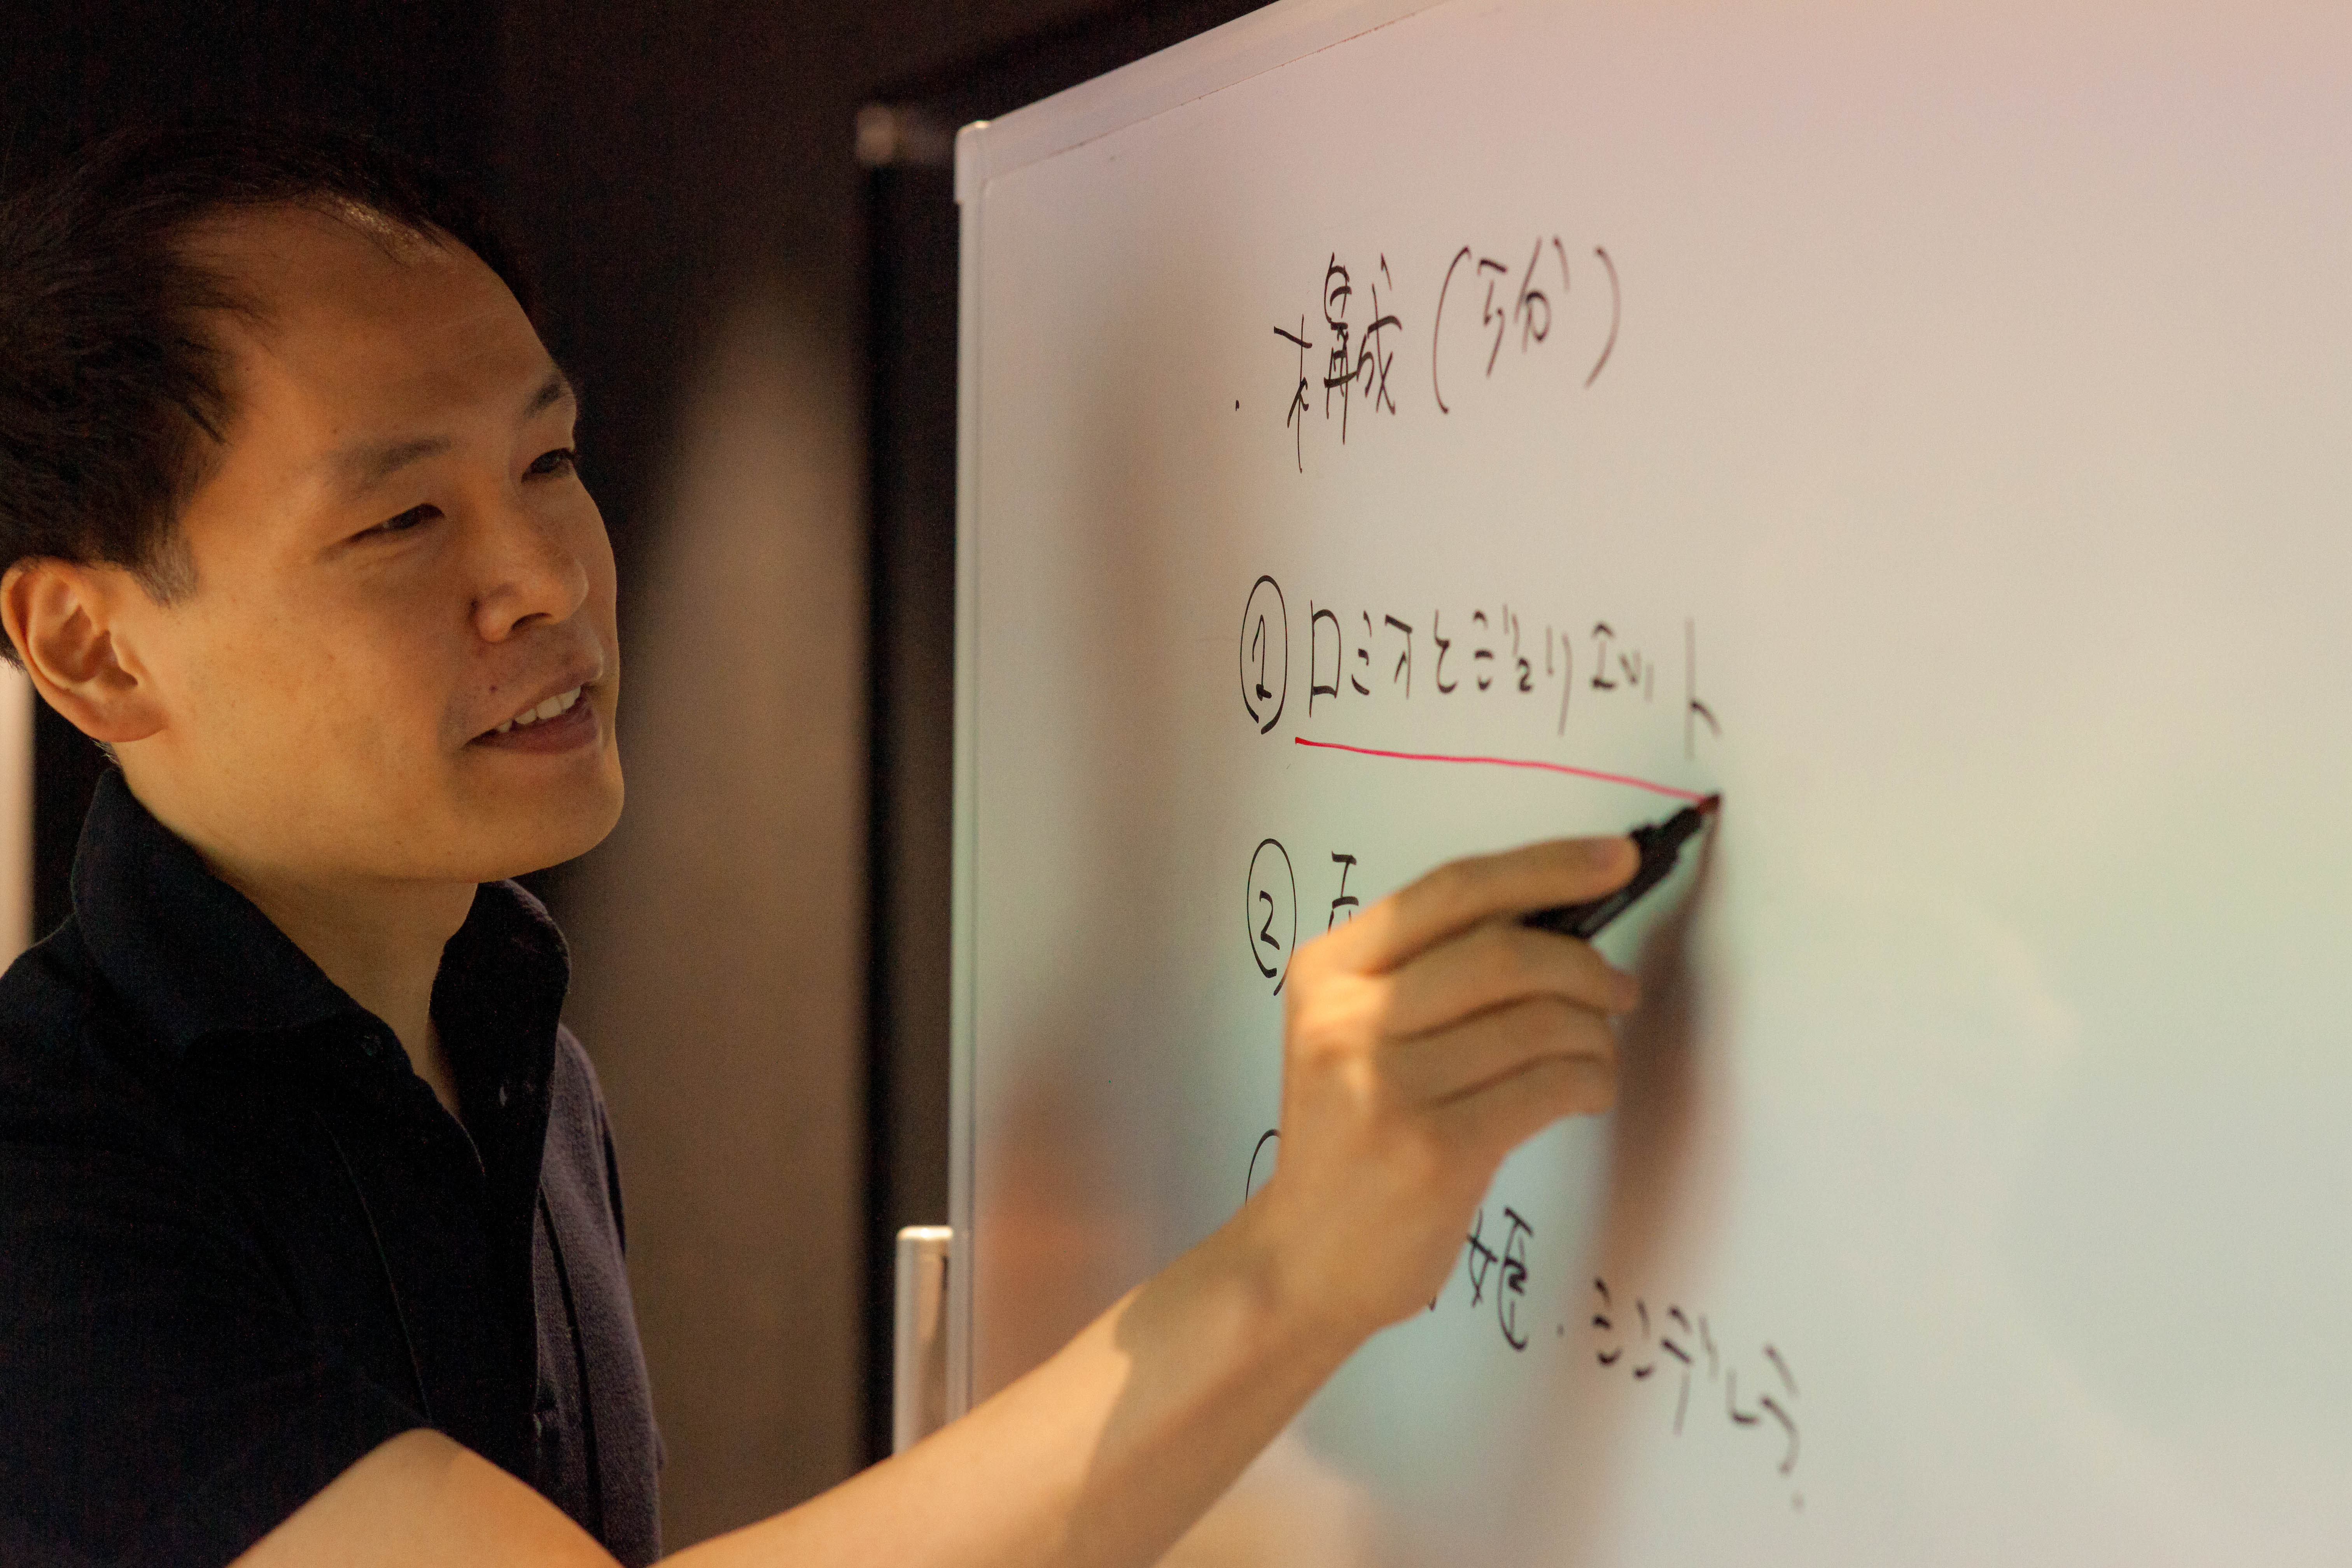 ・構成(5分)
① ロミオとジュリエット
②
婚・シンデレラ